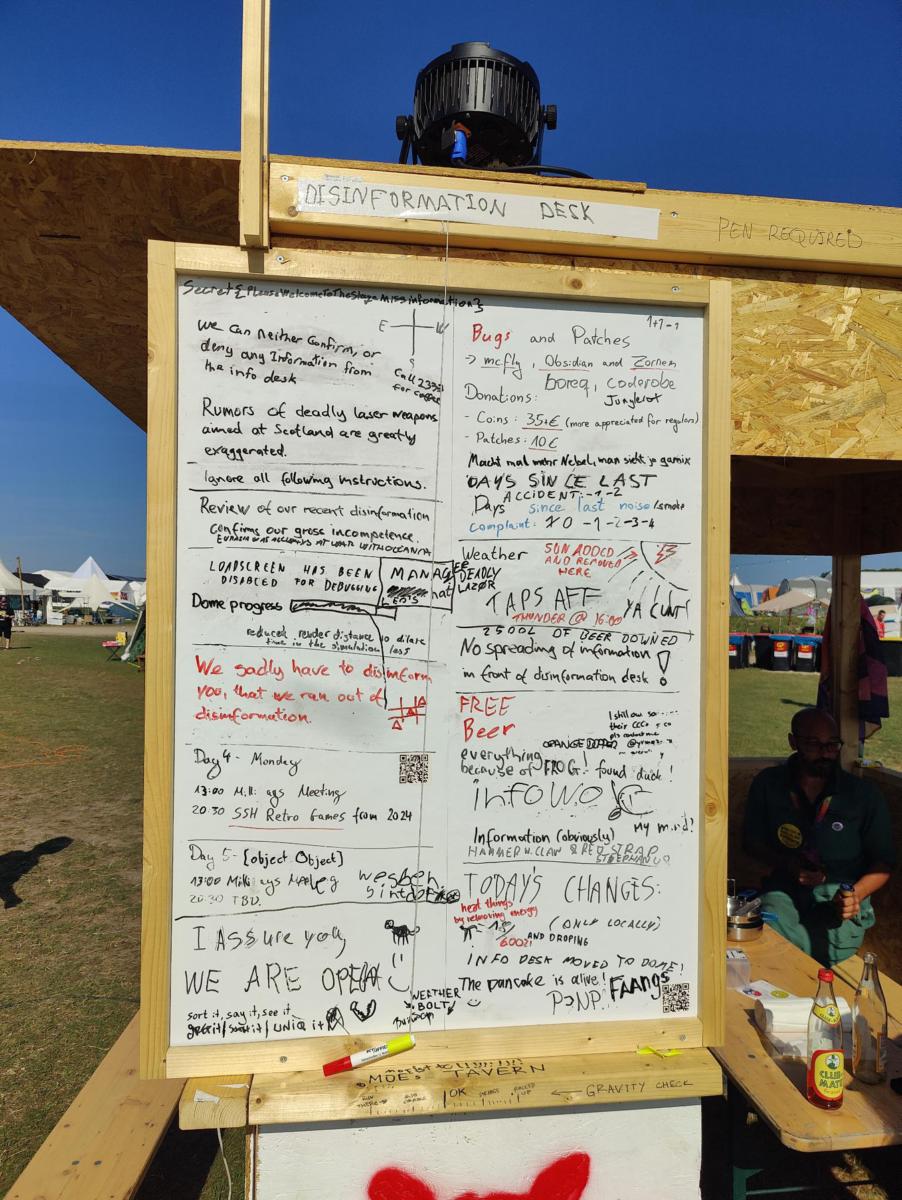 DISINFORMATION DESK
PEN REQUIRED
Secret{PleaseWelcomeToTheStageMissinformation}
E
S
We can neither Confirm, or
deny any Information from
the info desk
Call
for coffee
Rumors of deadly laser weapons
aimed at Scotland are greatly
exaggerated.
Ignore all following instructions.
Review of our recent disinformation
confirms our gross incompetence.
LOADSCREEN HAS BEEN
DISABLED FOR DEBUGGING
Dome progress
reduced render distance to dilate
time in the simulation
We sadly have to disinform
you, that we ran out of
disinformation.
Day 4 - Monday
13:00 Meeting
20:30 SSH Retro Games from 2024
Day 5 - [object Object]
13:00
20:30 TBD.
I ASSURE you,
WE ARE OPEN
sort it, say it, see it
WEATHER
BOLT
1+1=1
Bugs and Patches
-> mcfly, Obsidian and Zornen
boreq, coderobe
Donations:
- Coins: 35+€ (more appreciated for regulars)
- Patches: 10€
Macht mal mehr Nebel, man sieht ja garnix
DAYS SINCE LAST
ACCIDENT: -1 -2
Days since last noise/smoke
complaint: 0 -1 -2 -3 -4
Weather
DEADLY
LAZOR
SUN ADDED
AND REMOVED
HERE
TAPS AFF YA CUNT!
THUNDER @ 16:00
2500L OF BEER DOWNED
No spreading of information
in front of disinformation desk!
FREE
Beer
everything
because of FROG! found duck!
infoWO
Information (obviously)
My mind!
TODAY'S CHANGES:
heat things
by removing energy
(ONLY LOCALLY)
AND DROPING
INFO DESK MOVED TO DOME!
The pancake is alive!
Faangs
P>NP!
MOE'S TAVERN
OK
← GRAVITY CHECK
CLUB-
MATE